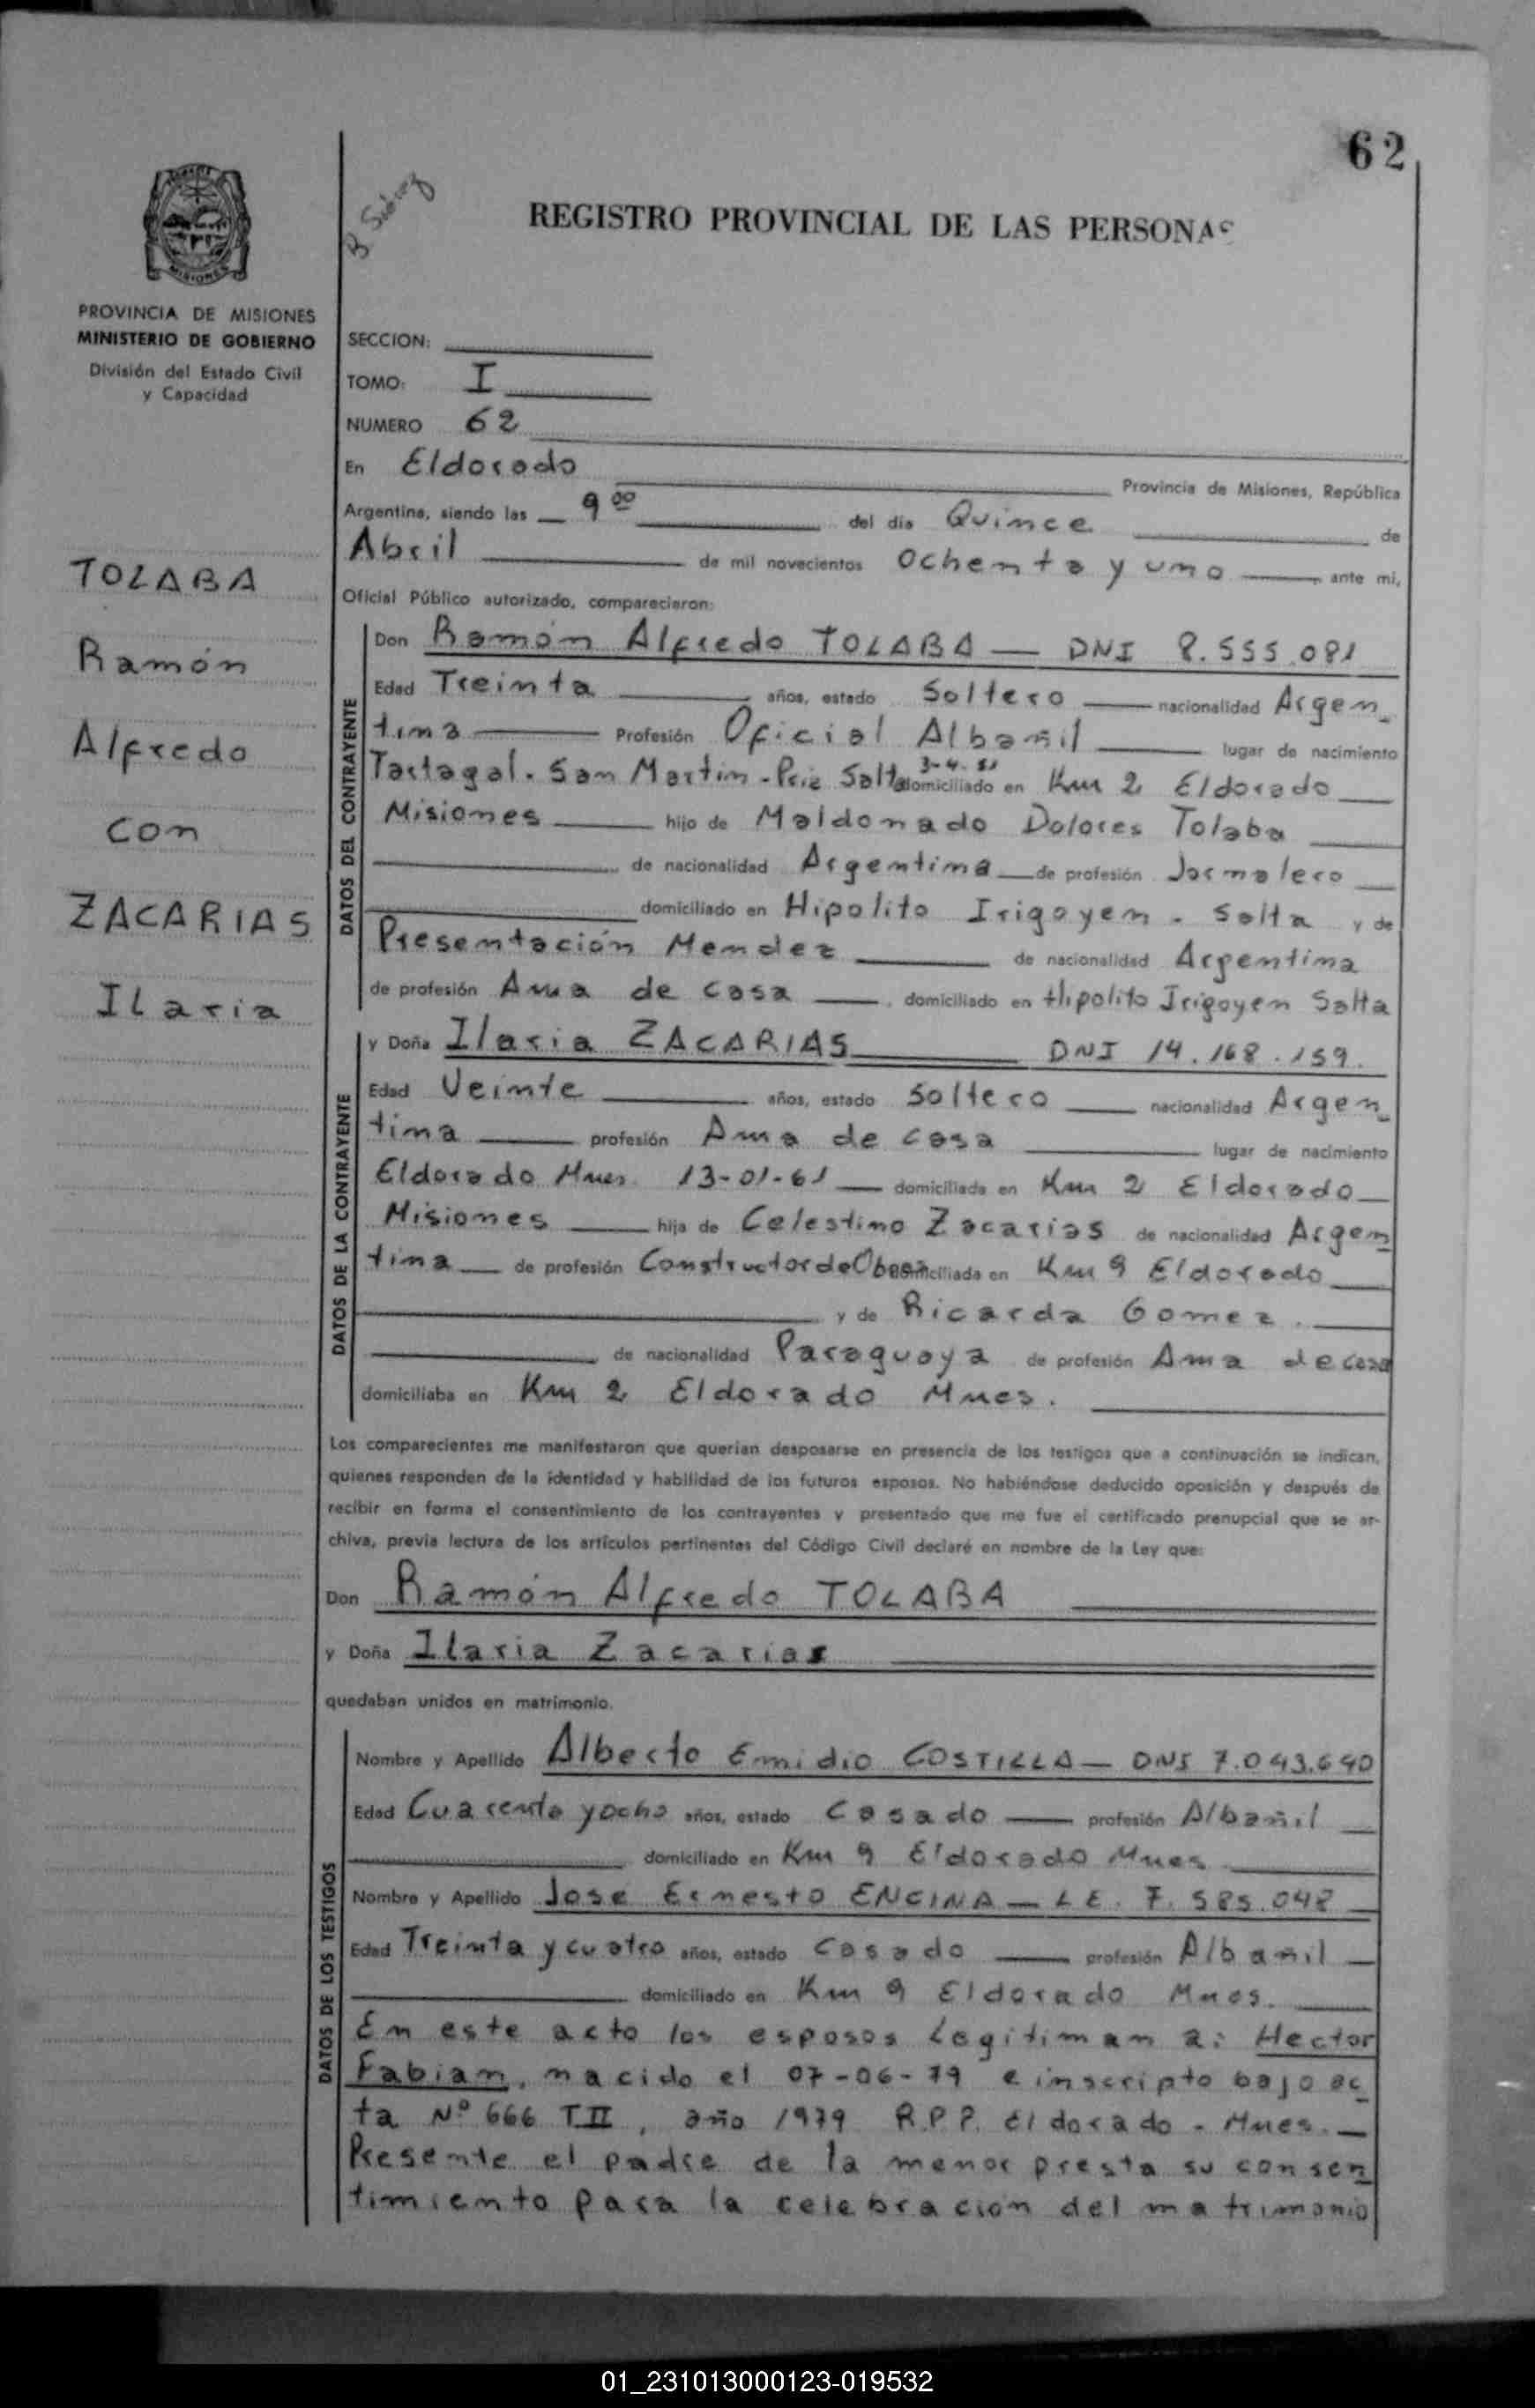 62
B Suárez
REGISTRO PROVINCIAL DE LAS PERSONAS
MISIONES
PROVINCIA DE MISIONES
MINISTERIO DE GOBIERNO
División del Estado Civil
y Capacidad
TOLABA
Ramón
Alfredo
con
ZACARIAS
ILaria
SECCION:
TOMO: I
NUMERO 62
En Eldorado Provincia de Misiones, República
Argentina, siendo las 9 00 del día Quince de
Abril de mil novecientos Ochenta y uno ante mi,
Oficial Público autorizado, comparecieron:
DATOS DEL CONTRAYENTE
Don Ramón Alfredo TOLABA — DNI 8.555.081
Edad Treinta años, estado Soltero nacionalidad Argen_
tina Profesión Oficial Albañil lugar de nacimiento
Tartagal. San Martin - Pcia Salta 3-4-51 domiciliado en Km 2 Eldorado
Misiones hijo de Maldonado Dolores Tolaba
de nacionalidad Argentina de profesión Jornalero
domiciliado en Hipolito Irigoyen - Salta y de
Presentación Mendez de nacionalidad Argentina
de profesión Ama de casa domiciliado en Hipolito Irigoyen Salta
DATOS DE LA CONTRAYENTE
y Doña Ilaria ZACARIAS DNI 14.168.159.
Edad Veinte años, estado Soltero nacionalidad Argen_
tina profesión Ama de casa lugar de nacimiento
Eldorado Mnes. 13-01-61 domiciliada en Km 2 Eldorado
Misiones hija de Celestino Zacarias de nacionalidad Argen
tina de profesión Constructor de Obras domiciliada en Km 9 Eldorado
y de Ricarda Gomez.
de nacionalidad Paraguaya de profesión Ama de casa
domiciliaba en Km 2 Eldorado Mnes.
Los comparecientes me manifestaron que querían desposarse en presencia de los testigos que a continuación se indican,
quienes responden de la identidad y habilidad de los futuros esposos. No habiéndose deducido oposición y después de
recibir en forma el consentimiento de los contrayentes y presentado que me fue el certificado prenupcial que se ar-
chiva, previa lectura de los artículos pertinentes del Código Civil declaré en nombre de la Ley que:
Don Ramón Alfredo TOLABA
y Doña Ilaria Zacarias
quedaban unidos en matrimonio.
DATOS DE LOS TESTIGOS
Nombre y Apellido Alberto Emidio COSTILLA — DNI 7.043.640
Edad Cuarenta y ocho años, estado Casado profesión Albañil
domiciliado en Km 9 Eldorado Mnes
Nombre y Apellido Jose Ernesto ENCINA — LE. 7.585.048
Edad Treinta y cuatro años, estado Casado profesión Albañil
domiciliado en Km 9 Eldorado Mnes.
En este acto los esposos Legitiman a: Hector
Fabian, nacido el 07-06-79 e inscripto bajo ac
ta Nº 666 T II, año 1979 R.P.P. Eldorado - Mnes.
Presente el padre de la menor presta su consen
timiento para la celebración del matrimonio
01_231013000123-019532